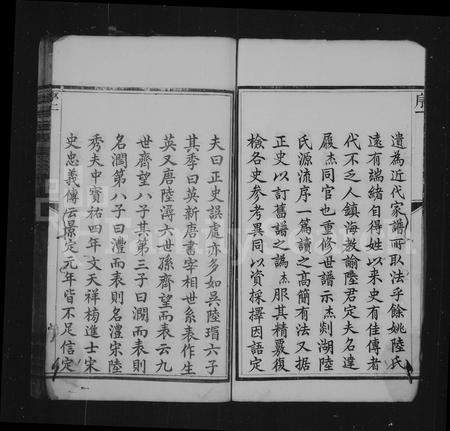 遺為近代家譜所取法乎餘姚陸氏
遠有瑞緒自得姓以來史有佳傳者
代不乏人鎮海教諭陸君定夫名達
履杰同官也重修世譜示杰剡湖陸
氏源流序一篇讀之高簡有法又據
正史以訂舊譜之譌杰服其精覈復
檢各史參考異同以資採擇因語定
夫曰正史誤處亦多如吳陸瑁六子
其季曰英新唐書宰相世系表作生
英又唐陸溥六世孫齊望而表云九
世齊望八子其第三子曰澗而表則
名潤第八子曰澧而表則名灃宋陸
秀夫中寶祐四年文天祥榜進士宋
史忠義傳云景定元年皆不足信定